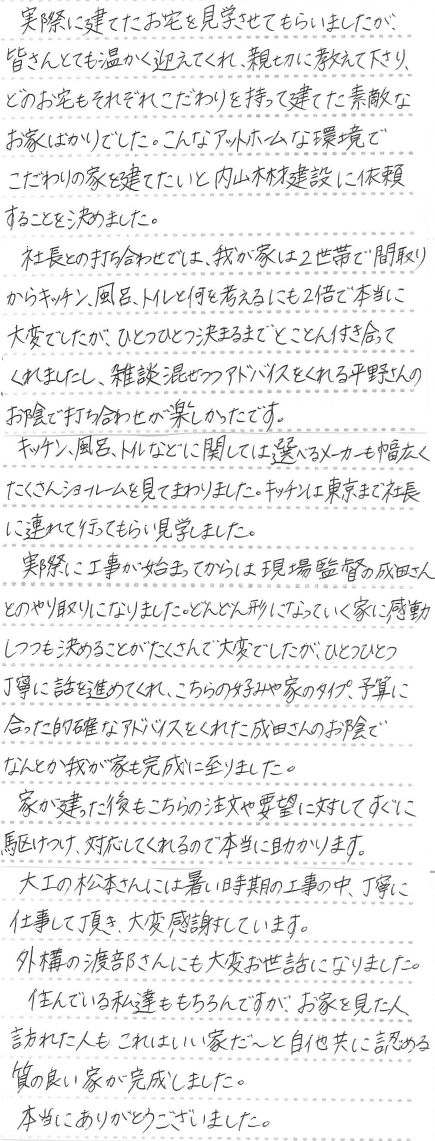 実際に建てたお宅を見学させてもらいましたが、
皆さんとても温かく迎えてくれ、親切に教えて下さり、
どのお宅もそれぞれこだわりを持って建てた素敵な
お家ばかりでした。こんなアットホームな環境で
こだわりの家を建てたいと内山木材建設に依頼
することを決めました。
社長との打ち合わせでは、我が家は2世帯で間取り
からキッチン、風呂、トイレと何を考えるにも2倍で本当に
大変でしたが、ひとつひとつ決まるまでとことん付き合って
くれましたし、雑談混ぜつつアドバイスをくれる平野さんの
お陰で打ち合わせが楽しかったです。
キッチン、風呂、トイレなどに関しては選べるメーカーも幅広く
たくさんショールームを見てまわりました。キッチンは東京まで社長
に連れて行ってもらい見学しました。
実際に工事が始まってからは現場監督の成田さん
とのやり取りになりました。どんどん形になっていく家に感動
しつつも決めることがたくさんで大変でしたが、ひとつひとつ
丁寧に話を進めてくれ、こちらの好みや家のタイプ、予算に
合った的確なアドバイスをくれた成田さんのお陰で
なんとか我が家も完成に至りました。
家が建った後もこちらの注文や要望に対してすぐに
駆けつけ、対応してくれるので本当に助かります。
大工の松本さんには暑い時期の工事の中、丁寧に
仕事して頂き、大変感謝しています。
外構の渡部さんにも大変お世話になりました。
住んでいる私達ももちろんですが、お家を見た人、
訪れた人も これはいい家だ〜と自他共に認める
質の良い家が完成しました。
本当にありがとうございました。